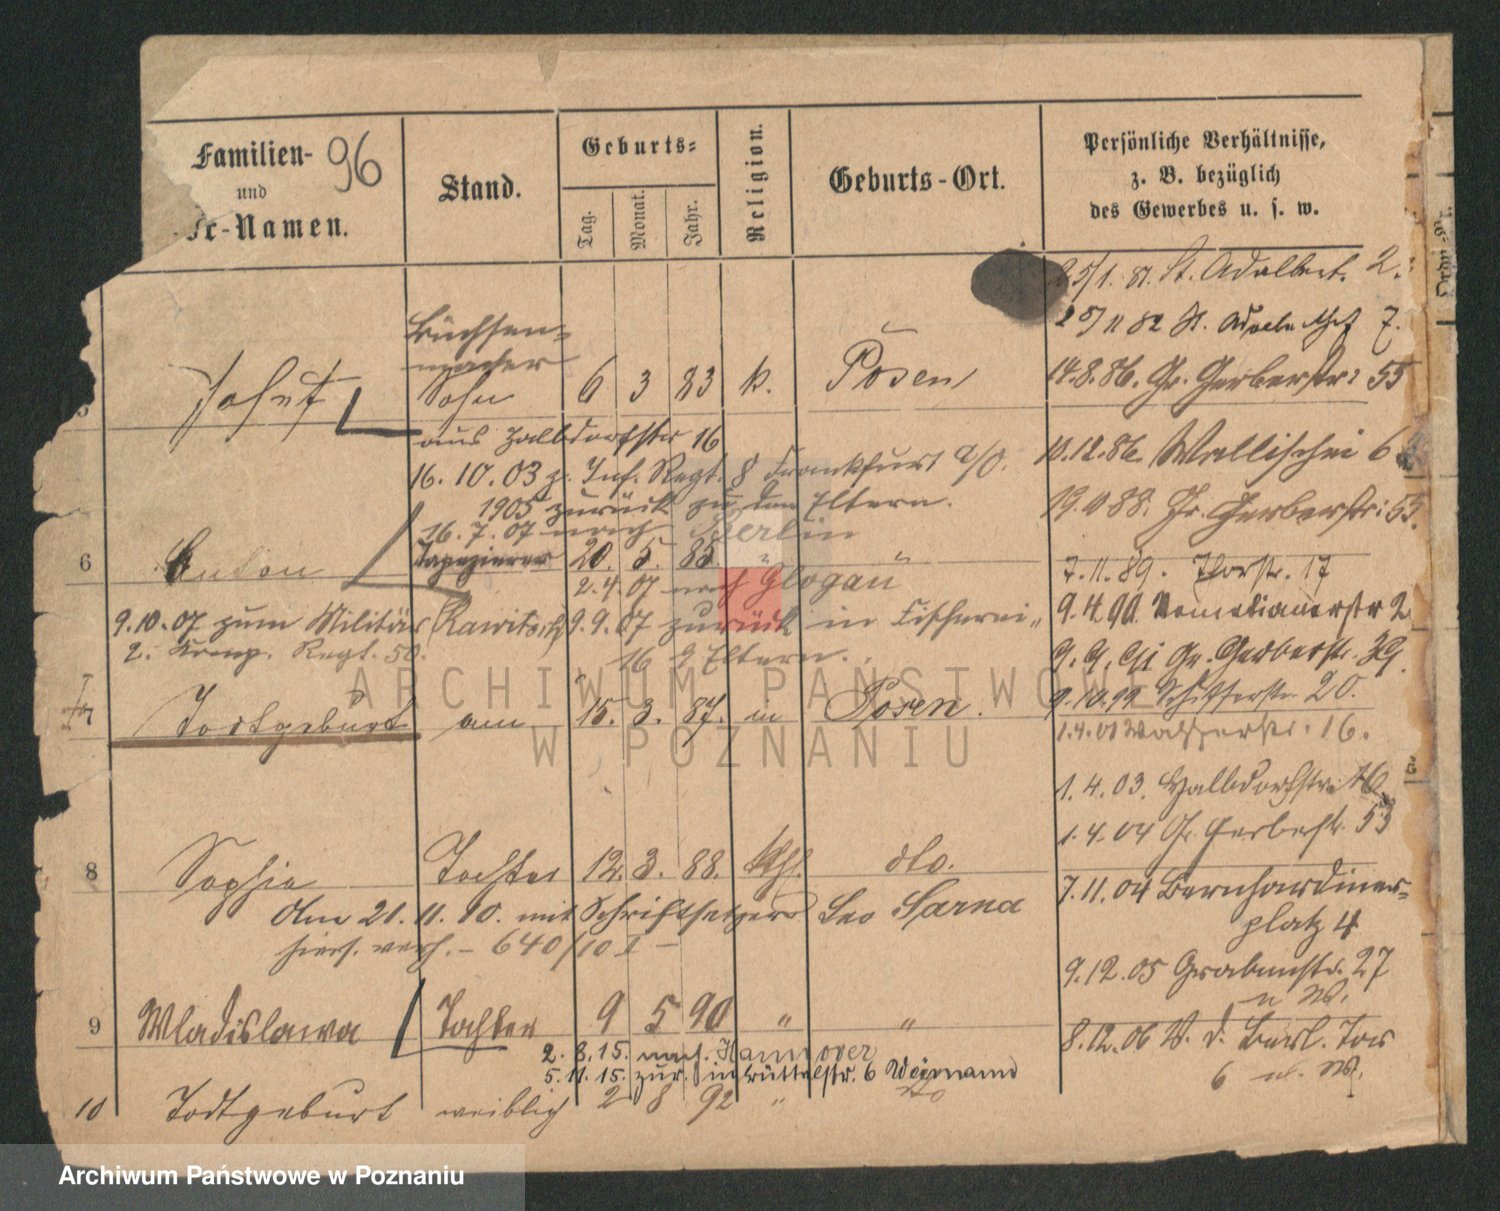 Familien-
und
-Namen.
96
Stand.
Geburts-
Tag.
Monat.
Jahr.
Religion.
Geburts-Ort.
Persönliche Verhältnisse,
z. B. bezüglich
des Gewerbes u. s. w.
25/1. 81. St. Adalbert. 2.
25/11 82 St. Adalb 7.
Büchsen-
macher
Sohn 6 3 83 k. Posen
14.8.86. Gr. Gerberstr: 55
aus Halbdorfstr 16
10.12.86. Wallischei 6
16.10.03 z. Inf. Regt. 8 Frankfurt a/O.
1905 zurück zu den Eltern.
88. Gr. Gerberstr: 53.
16.7.07 nach Berlin
6 Anton Tapezierer 20. 5. 85. " "
7.11.89. Thorstr. 17
2.4.07 nach Glogau
9.4.90. Venetianerstr 2
9.10.07 zum Militär Rawitsch 9.9.07 zurück in Fischerei
2. Komp. Regt. 50.
16 Eltern.
Gr. Gerberstr. 39.
7 Todtgeburt am 15. 3. 87. in Posen.
9.10.99 Schifferstr. 20.
1.4.01 Wasserstr. 16.
1.4.03. Halbdorfstr. 16
1.4.04 Gr. Gerberstr. 53
8 Sophia Tochter 12. 3. 88. kth. dto.
7.11.04 Bernhardiner-
platz 4
Am 21.11.10. mit Schriftsetzer Leo Sarna
hiers. verh. – 640/10 I –
9.12.05 Grabenstr. 27
u W.
9 Wladislawa Tochter 9 5 90 " "
8.12.06 V. d. Berl. Tor
6 W.
2.8.15. nach Hannover
5.11.15. zur. in 6 Weimann
10 Todtgeburt weiblich 2 8 92 "
ARCHIWUM PAŃSTWOWE
W POZNANIU
Archiwum Państwowe w Poznaniu